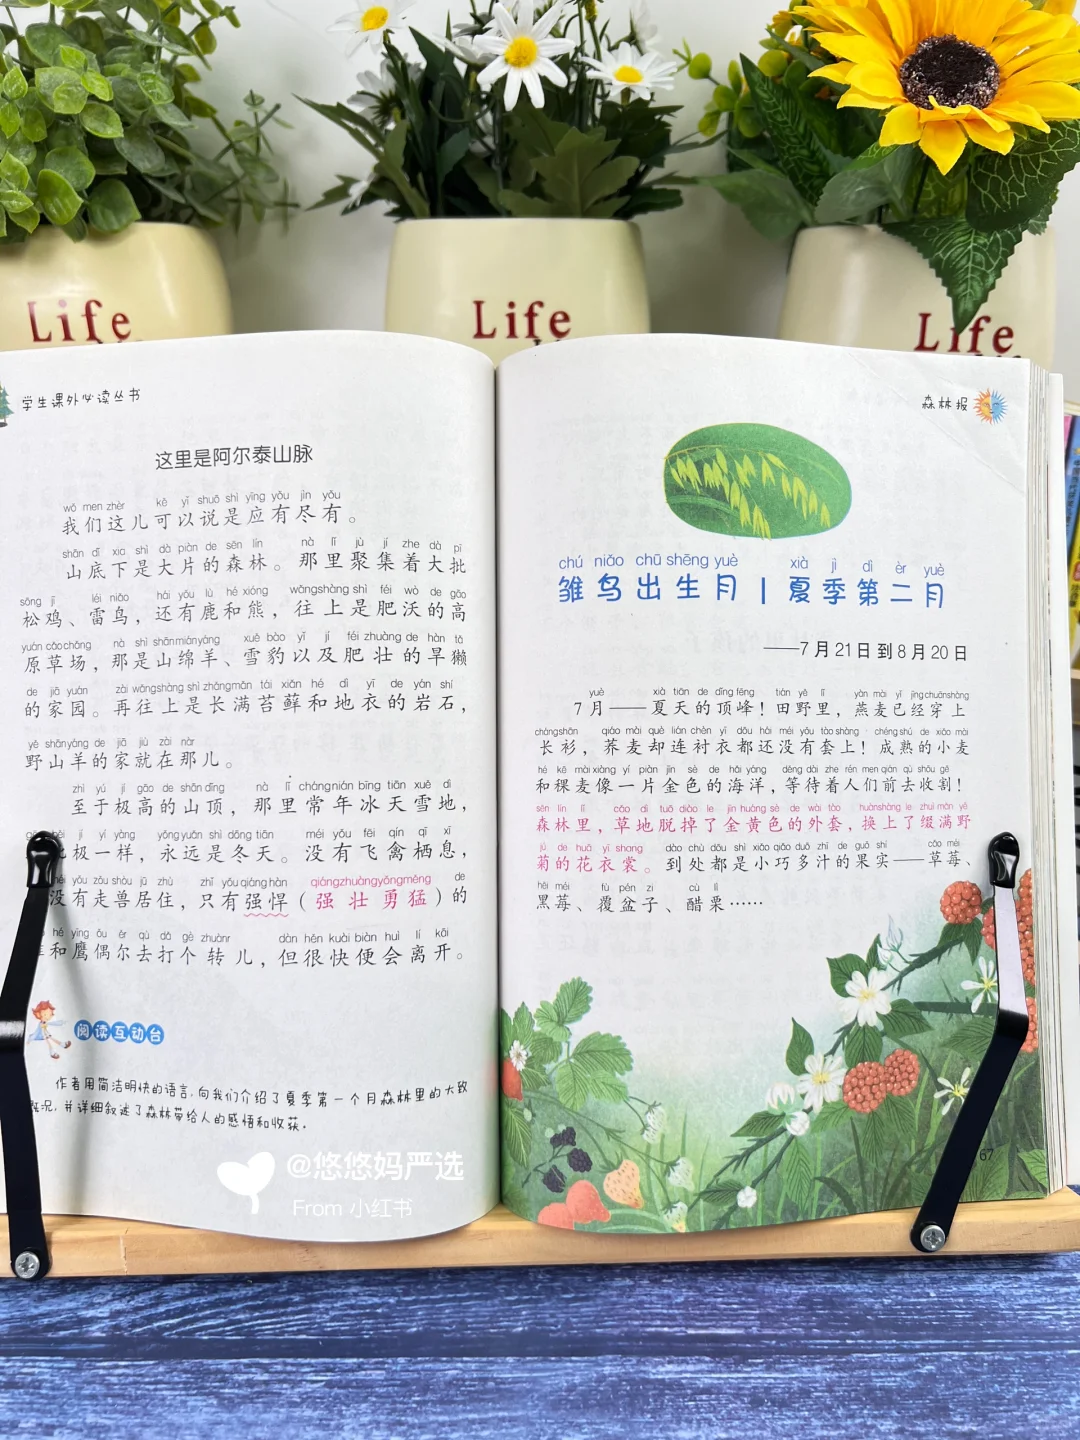 Life
Life
Life
学生课外必读丛书
这里是阿尔泰山脉
wǒ men zhèr kě yǐ shuō shì yīng yǒu jìn yǒu
我们这儿可以说是应有尽有。
shān dǐ xia shì dà piàn de sēn lín nà lǐ jù jí zhe dà pī
山底下是大片的森林。那里聚集着大批
sōng jī léi niǎo hái yǒu lù hé xióng wǎng shàng shì féi wò de gāo
松鸡、雷鸟，还有鹿和熊，往上是肥沃的高
yuán cǎo chǎng nà shì shān mián yáng xuě bào yǐ jí féi zhuàng de hàn tǎ
原草场，那是山绵羊、雪豹以及肥壮的旱獭
de jiā yuán zài wǎng shàng shì zhǎng mǎn tái xiǎn hé dì yī de yán shí
的家园。再往上是长满苔藓和地衣的岩石，
yě shān yáng de jiā jiù zài nàr
野山羊的家就在那儿。
zhì yú jí gāo de shān dǐng nà lǐ cháng nián bīng tiān xuě dì
至于极高的山顶，那里常年冰天雪地，
běi jí yí yàng yǒng yuǎn shì dōng tiān méi yǒu fēi qín qī xī
极一样，永远是冬天。没有飞禽栖息，
méi yǒu zǒu shòu jū zhù zhǐ yǒu qiáng hàn qiáng zhuàng yǒng měng de
没有走兽居住，只有强悍（强壮勇猛）的
hé yīng ǒu ěr qù dǎ gè zhuànr dàn hěn kuài biàn huì lí kāi
和鹰偶尔去打个转儿，但很快便会离开。
阅读互动台
作者用简洁明快的语言，向我们介绍了夏季第一个月森林里的大致
况，并详细叙述了森林带给人的感悟和收获。
@悠悠妈严选
From 小红书
森林报
chú niǎo chū shēng yuè xià jì dì èr yuè
雏鸟出生月 | 夏季第二月
——7月21日到8月20日
yuè xià tiān de dǐng fēng tián yě lǐ yàn mài yǐ jīng chuān shàng
7月——夏天的顶峰！田野里，燕麦已经穿上
cháng shān qiáo mài què lián chèn yī dōu hái méi yǒu tào shàng chéng shú de xiǎo mài
长衫，荞麦却连衬衣都还没有套上！成熟的小麦
hé kē mài xiàng yí piàn jīn sè de hǎi yáng děng dài zhe rén men qián qù shōu gē
和稞麦像一片金色的海洋，等待着人们前去收割！
sēn lín lǐ cǎo dì tuō diào le jīn huáng sè de wài tào huàn shàng le zhuì mǎn yě
森林里，草地脱掉了金黄色的外套，换上了缀满野
jú de huā yī shang dào chù dōu shì xiǎo qiǎo duō zhī de guǒ shí cǎo méi
菊的花衣裳。到处都是小巧多汁的果实——草莓、
hēi méi fù pén zi cù lì
黑莓、覆盆子、醋栗……
67